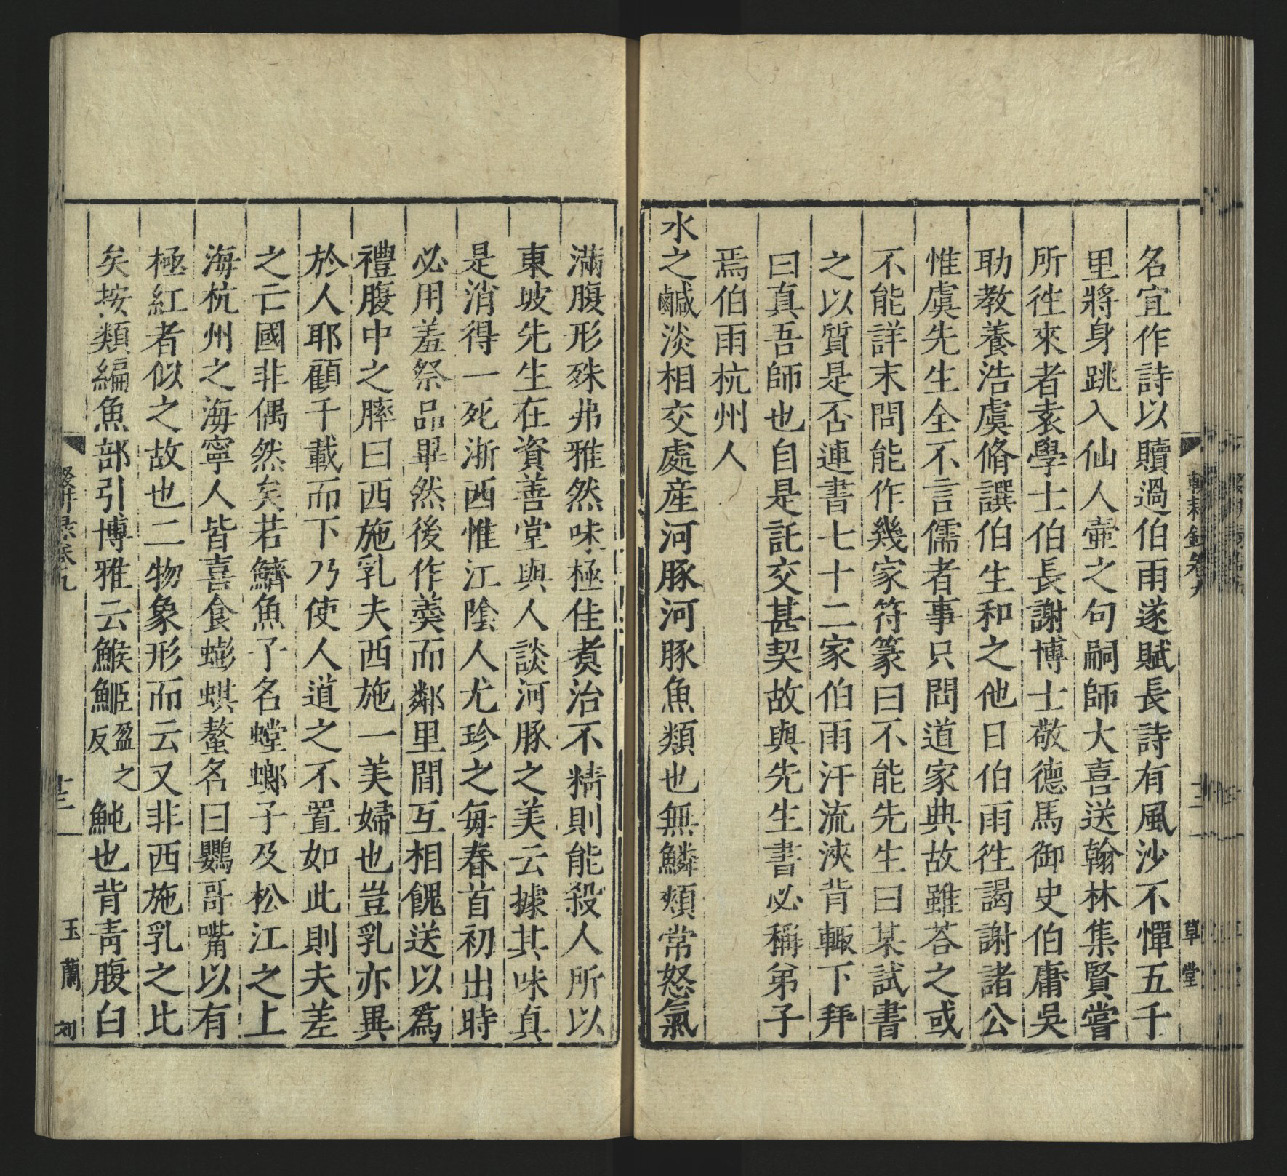 名宜作詩以贖過伯雨遂賦長詩有風沙不憚五千
里將身跳入仙人壷之句嗣師大喜送翰林集賢嘗
所徃來者袁學士伯長謝博士敬德馬御史伯庸吳
助教養浩虞脩譔伯生和之他日伯雨徃謁謝諸公
惟虞先生全不言儒者事只問道家典故雖荅之或
不能詳末問能作幾家符篆曰不能先生曰某試書
之以質是否連書七十二家伯雨汗流浹背輙下拜
曰真吾師也自是託交甚契故與先生書必稱弟子
焉伯雨杭州人
水之鹹淡相交處産河豚河豚魚類也無鱗頰常怒氣
滿腹形殊弗雅然味極佳煑治不精則能殺人所以
東坡先生在資善堂與人談河豚之美云據其味真
是消得一死浙西惟江陰人尤珍之每春首初出時
必用羞祭品畢然後作羹而鄰里間互相餽送以爲
禮腹中之膟曰西施乳夫西施一美婦也豈乳亦異
於人耶顧千載而下乃使人道之不置如此則夫差
之亡國非偶然矣若鱭魚子名螳螂子及松江之上
海杭州之海寧人皆喜食蟛蜞螯名曰鸚哥嘴以有
極紅者似之故也二物象形而云又非西施乳之比
矣按類編魚部引博雅云鯸䱌盈之反魨也背青腹白
輟耕錄卷九
十三
草堂
玉蘭